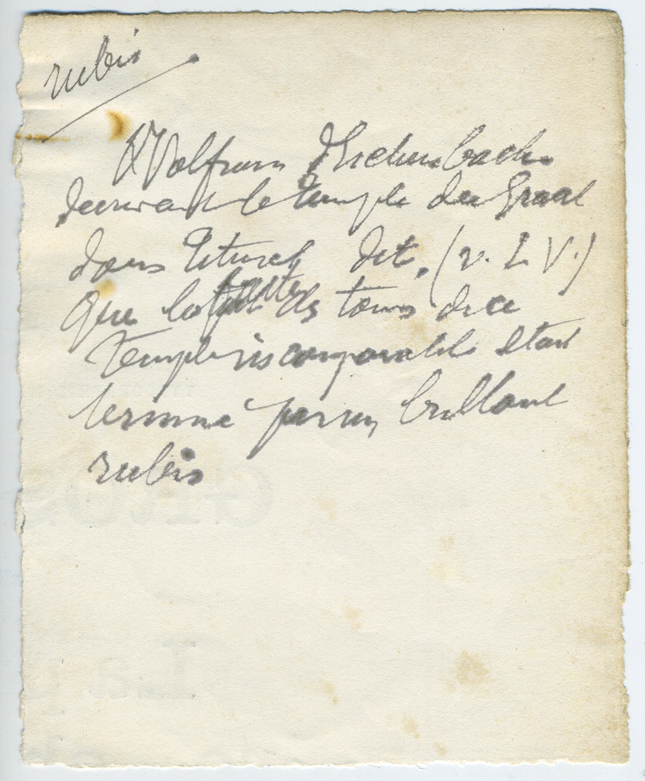 rubis
Wolfram d'Eschenbach
decrivant le temple du Graal
dans Titurel dit, (v. L V.)
que le faite des tours de ce
temple incomparable etait
terminé par un brillant
rubis